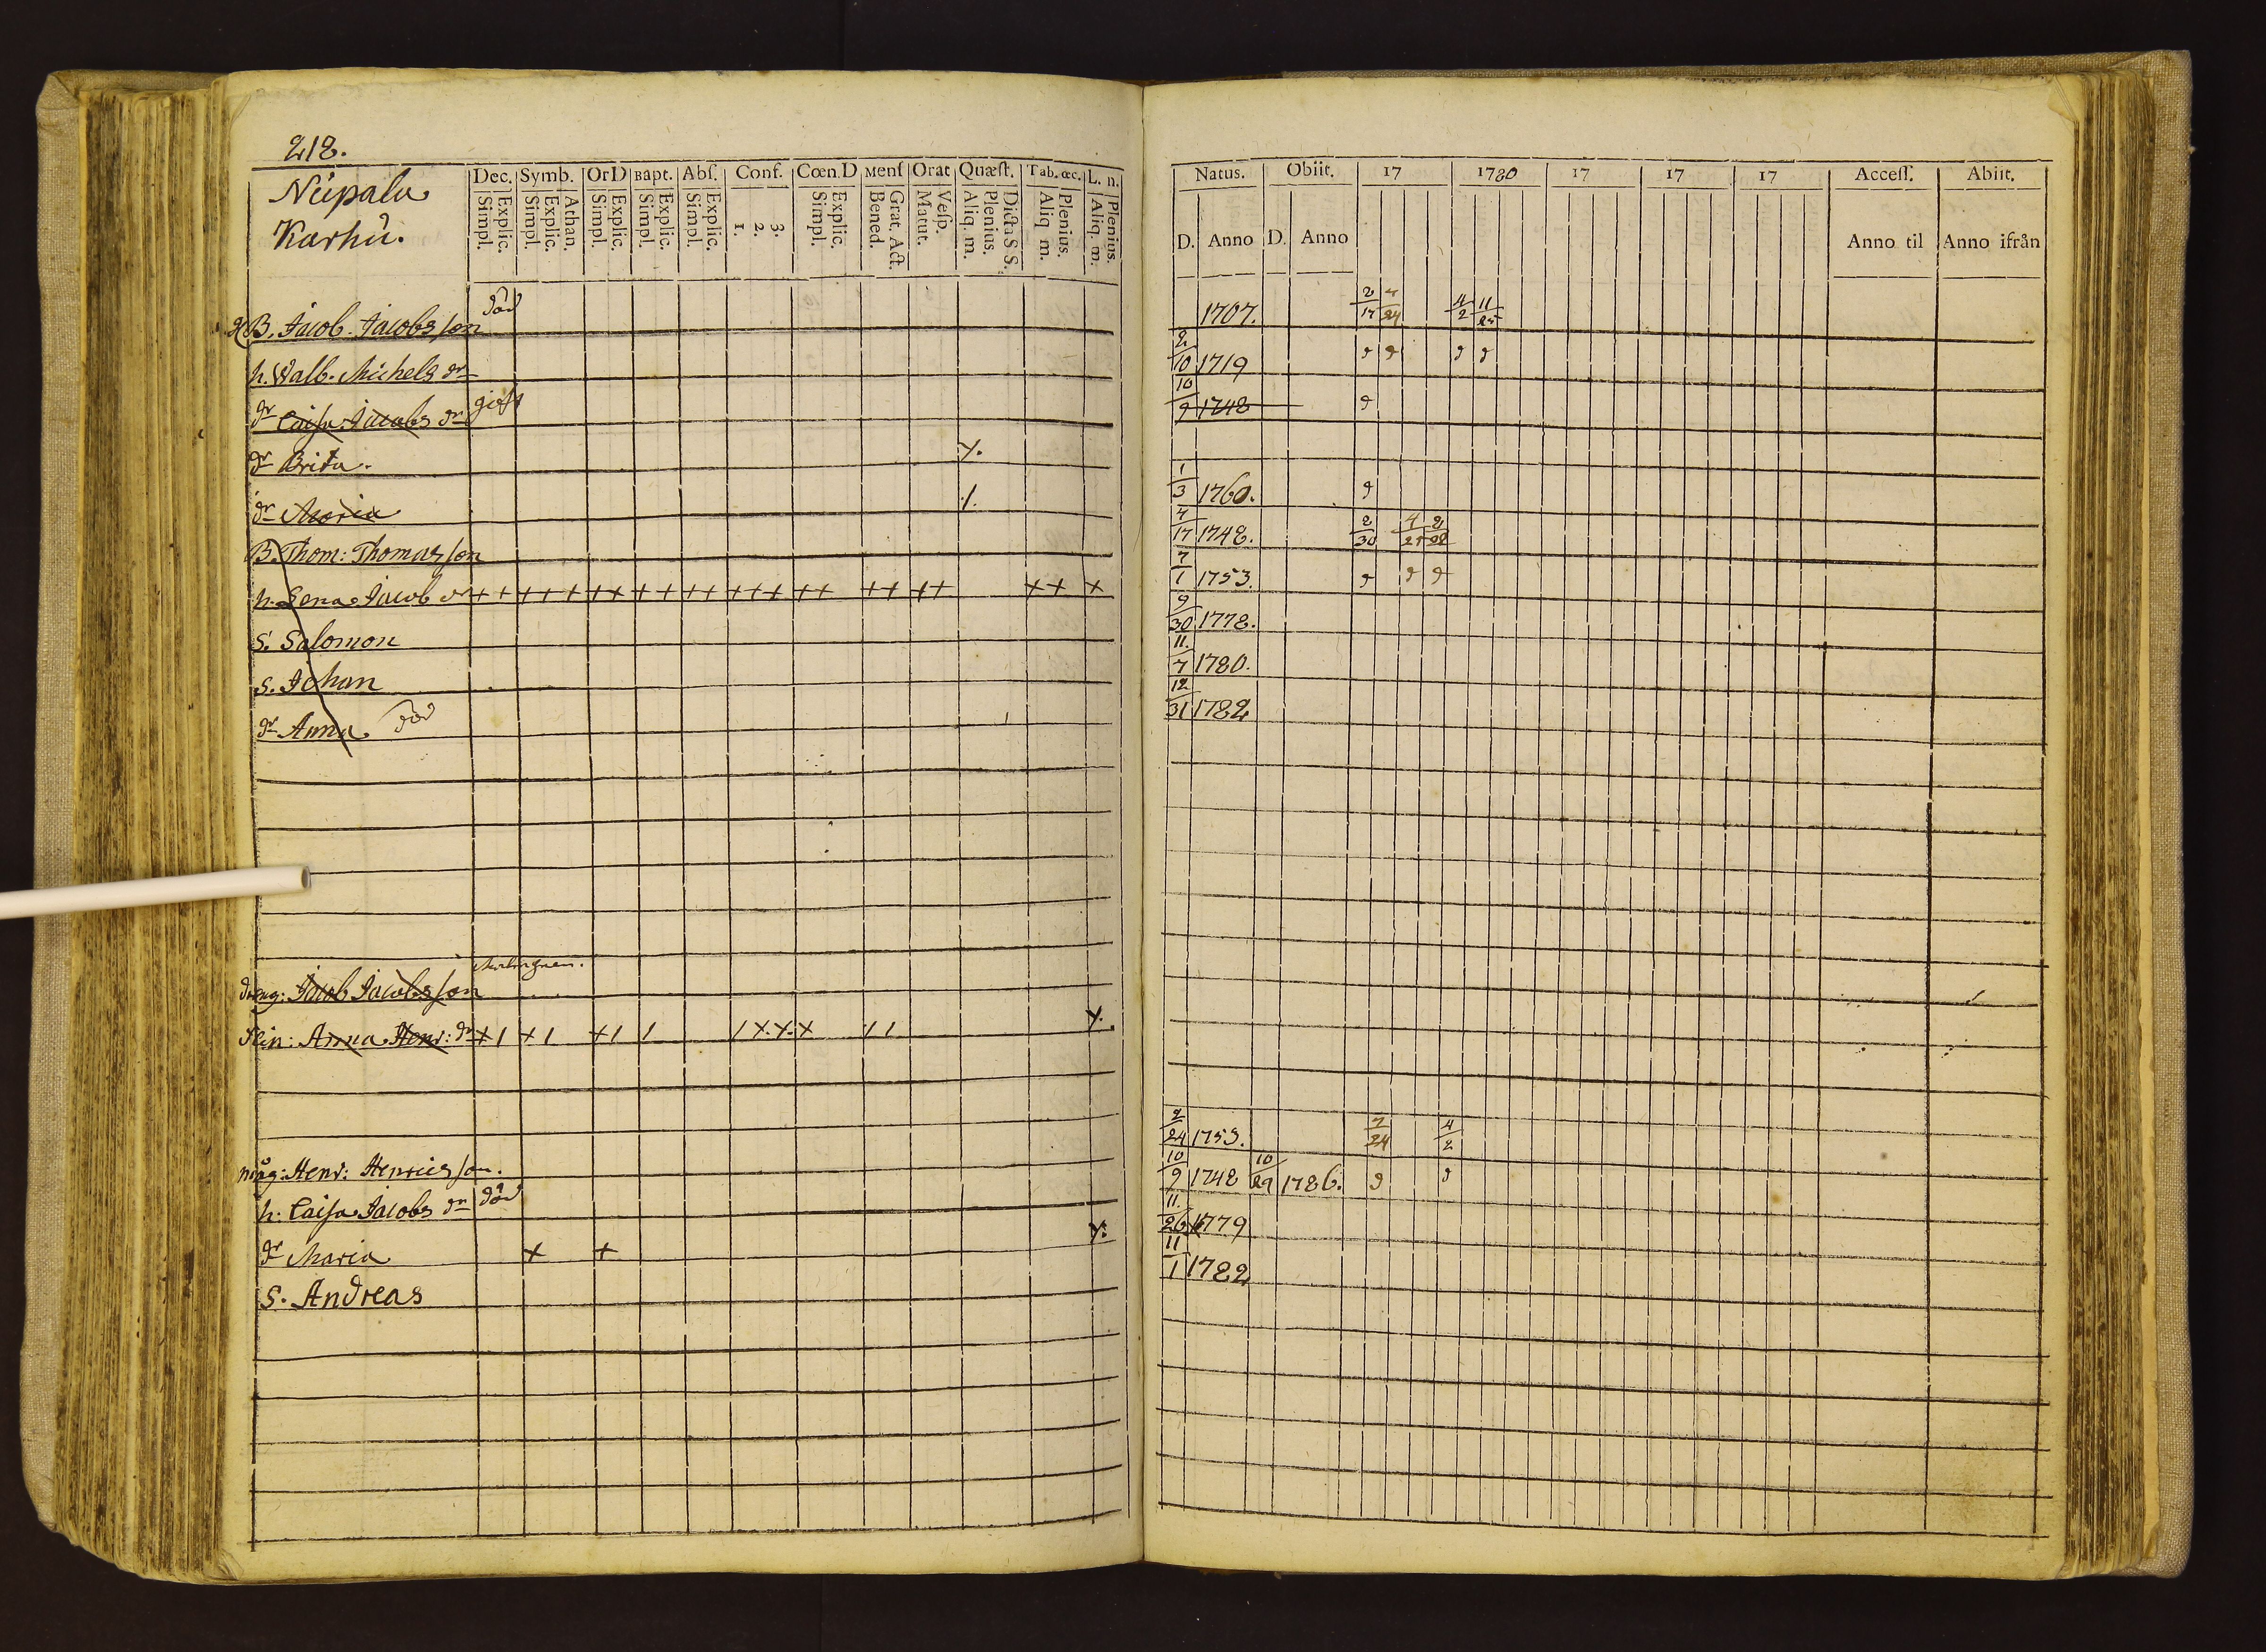 212.
Nüpala
Karhu.
Dec. Symb. OrD Bapt. Abſ. Conf. Cœn.D Menſ Orat Quæſt. Tab. œc. L. n.
Simpl. Explic. Simpl. Explic. Athan. Simpl. Explic. Simpl. Explic. Simpl. Explic. 1. 2. 3. Simpl. Explic. Bened. Grat. Act. Matut. Veſp. Aliq. m. Plenius. Dicta S S. Aliq m. Plenius. Aliq. m. Plenius.
B. Jacob Jacobsſon död
h. Walb. Michels dr
dr Caisa Jacobs dr gift
dr Brita.
dr Maria
B. Thom: Thomasſon
h. Lena Jacob dr ++ +++ ++ ++ ++ +++ ++ ++ ++ ++ +
S. Salomon
S. Johan
dr Anna död
dreng: Jacob Jacobsſon
Anna Henr: dr
Henr: Henricsſon.
h: Caisa Jacobs dr död
dr Maria + +
S. Andreas
Natus. Obiit. 17 1780 17 17 17 Acceſſ. Abiit.
D. Anno D. Anno Anno til Anno ifrån
1707. 2/17 4/24 4/2 11/25
2/10 1719
10/9 1748
1/3 1760.
4/17 1748. 2/30
7/1 1753.
9/30 1778.
11./7 1780.
12/31 1782
2/24 1753. 7/24 4/2
10/9 1748 10/29 1786.
11./26 1779
11/1 1782